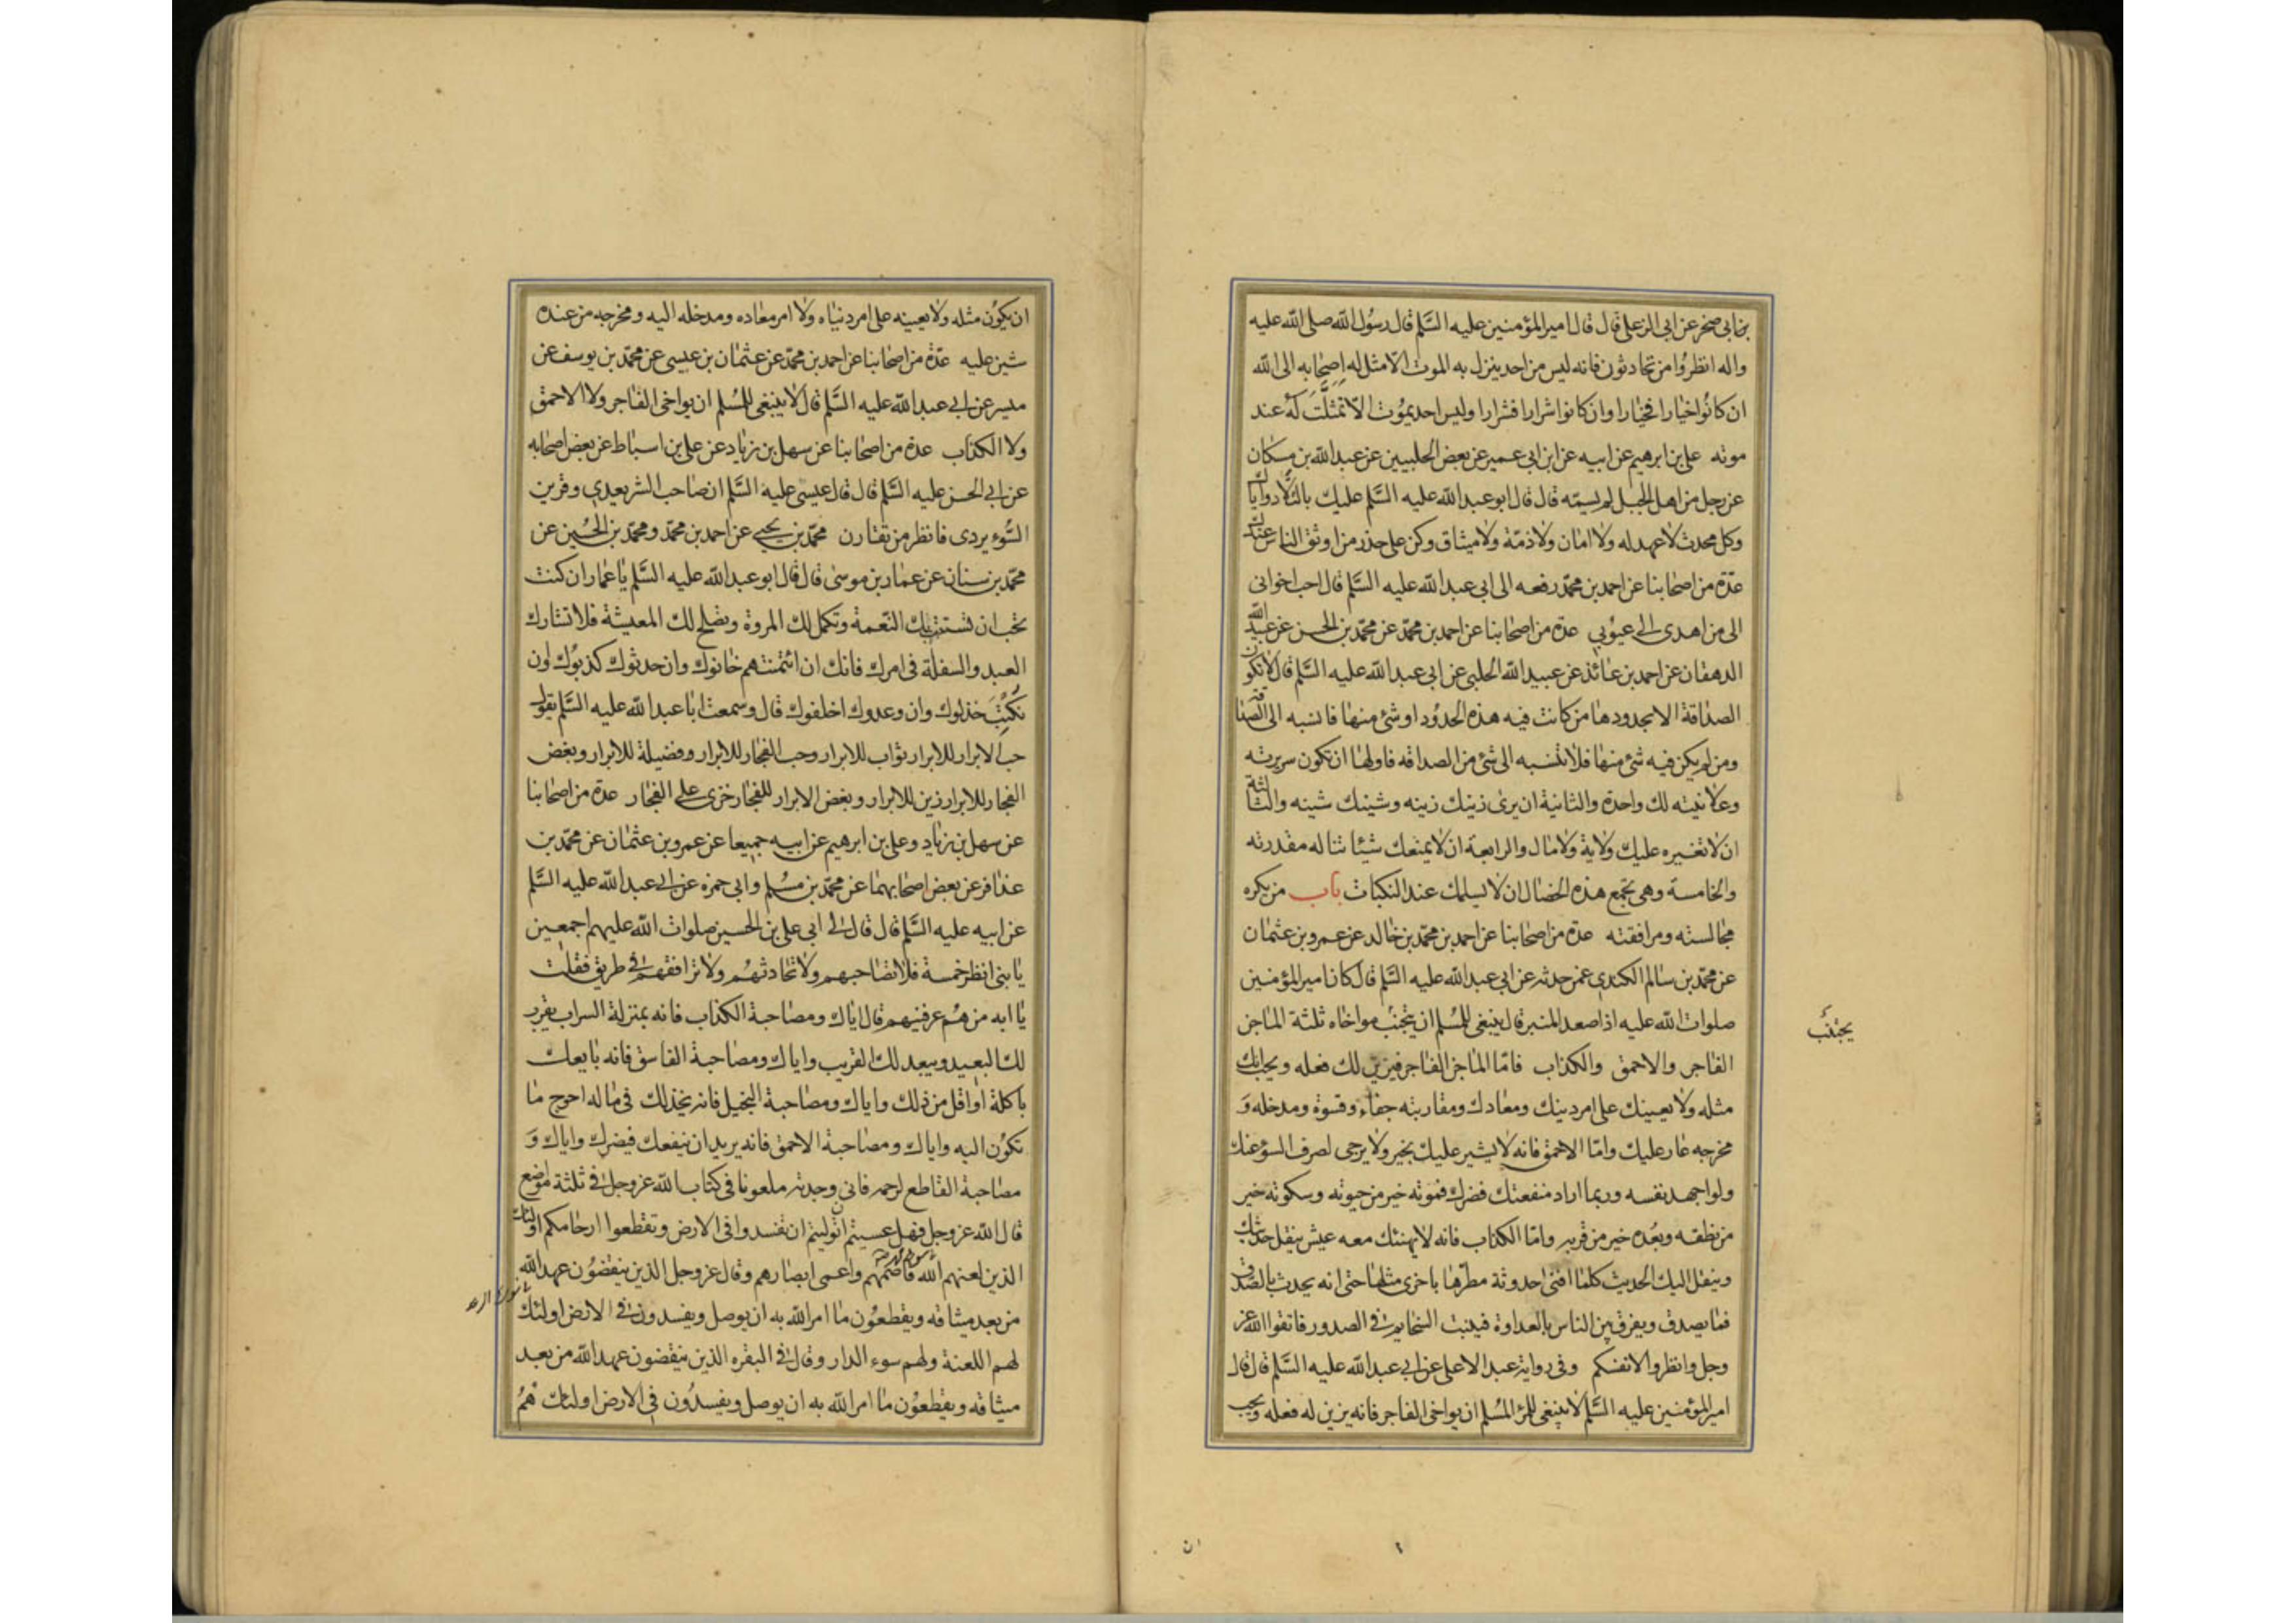 بن ابى صخر عن ابى الزعلى قال قال امير المؤمنين عليه السَّلم قال رسُول الله صلى الله عليه
واله انظرُوا من تحادثون فانه ليس من احد ينزل به الموت الا مثل له اصحابه الى الله
ان كانُوا خيارا فخيارا وان كانوا اشرارا فشرارا وليس احد يموُت الا تمثلَّتَ له عند
موته على بن ابرهيم عن ابيه عن ابن ابى عمير عن بعض الحلبيين عن عبدالله بن مسكان
عن رجل من اهل الجبل لم يسمّه قال قال ابو عبدالله عليه السَّلم عليك بالتلاد واياك
وكل محدث لا عهد له ولا امان ولا ذمّة ولا ميثاق وكن على حذر من اوثق الناس عندك
عدّة من اصحابنا عن احمد بن محمّد رفعه الى ابى عبدالله عليه السَّلم قال احب اخوانى
الى من اهدى الى عيُوبى عدة من اصحابنا عن احمد بن محمّد عن محمّد بن الحسن عن عبيدالله
الدهقان عن احمد بن عائذ عن عبيدالله الحلبى عن ابى عبدالله عليه السَّلم قال لا تكون
الصداقة الا بحدودها من كانت فيه هذه الحدُود او شئ منها فانسبه الى الصداقة
ومن لم يكن فيه شئ منها فلا تنسبه الى شئ من الصداقه فاولها ان تكون سريرته
وعلانيته لك واحدة والثانية ان يرى زينك زينه وشينك شينه والثالثة
ان لا تغيره عليك ولاية ولا مال والرابعة ان لا يمنعك شيئا تناله مقدرته
والخامسة وهى تجمع هذه الخصال ان لا يسلمك عند النكبات باب من يكره
مجالسته ومرافقته عدة من اصحابنا عن احمد بن محمّد بن خالد عن عمرو بن عثمان
عن محمّد بن سالم الكندى عمن حدثه عن ابى عبدالله عليه السَّلم قال كان امير المؤمنين
صلوات الله عليه اذا صعد المنبر قال ينبغى للمُسلم ان يتجنب مواخاه ثلثة الماجن
يجتنب
الفاجر والاحمق والكذاب فامّا الماجن الفاجر فيزين لك فعله ويحب انك
مثله ولا يعينك على امر دينك ومعادك ومقاربته جفاء وقسوة ومدخله وَ
مخرجه عار عليك وامّا الاحمق فانه لا يشير عليك بخير ولا يرجى لصرف السوء عنك
ولو اجهد نفسه وربما اراد منفعتك فضرك فموته خير من حيوته وسكوته خير
من نطقه وبعُده خير من قربه وامّا الكذاب فانه لا يهنئك معه عيش ينقل حديثك
وينقل اليك الحديث كلما افنى احدوثة مطّرها باخرى مثلها حتى انه يحدث بالصّدق
فما يصدق ويفرق بين الناس بالعداوة فينبت السّخايم فى الصدور فاتقوا الله عز
وجل وانظروا لانفسكم وفى رواية عبد الاعلى عن ابى عبدالله عليه السَّلم قال قال
امير المؤمنين عليه السَّلم لا ينبغى للمرء المُسلم ان يواخى الفاجر فانه يزين له فعله ويحب
ان يكوُن مثله ولا يعينه على امر دنياه ولا امر معاده ومدخله اليه ومخرجه من عنده
شين عليه عدّة من اصحابنا عن احمد بن محمّد عن عثمان بن عيسى عن محمّد بن يوسف عن
ميسر عن ابى عبدالله عليه السَّلم قال لا ينبغى للمُسلم ان يواخى الفاجر ولا الاحمق
ولا الكذاب عدة من اصحابنا عن سهل بن زياد عن على بن اسباط عن بعض اصحابه
عن ابى الحسن عليه السَّلم قال قال عيسى عليه السَّلم ان صاحب الشر يعدى وقرين
السُّوء يردى فانظر من تقارن محمّد بن يحيى عن احمد بن محمّد ومحمّد بن الحُسين عن
محمّد بن سنان عن عمار بن موسى قال قال ابو عبدالله عليه السَّلم يا عمار ان كنت
تحب ان تستتب لك النّعمة وتكمل لك المروة وتصلح لك المعيشة فلا تشارك
العبيد والسفلة فى امرك فانك ان ائتمنتهم خانوك وان حدثوك كذبُوك وان
نكُبتَ خذلوك وان وعدوك اخلفوك قال وسمعت ابا عبدالله عليه السَّلم يقول
حب الابرار للابرار ثواب للابرار وحب الفجار للابرار وفضيلة للابرار وبغض
الفجار للابرار زين للابرار وبغض الابرار للفجار خزى على الفجار عدة من اصحابنا
عن سهل بن زياد وعلى بن ابرهيم عن ابيه جميعا عن عمرو بن عثمان عن محمّد بن
عذافر عن بعض اصحابهما عن محمّد بن مسُلم وابى حمزه عن ابى عبدالله عليه السَّلم
عن ابيه عليه السَّلم قال قال لى ابى على بن الحسين صلوات الله عليهم اجمعين
يا بنى انظر خمسة فلا تصاحبهم ولا تحادثهُم ولا ترافقهم فى طريق فقلت
يا ابه من هُم عرفنيهم قال اياك ومصاحبة الكذاب فانه بمنزلة السراب يقرب
لك البعيد ويبعد لك القريب واياك ومصاحبة الفاسق فانه بايعك
باكلة او اقل من ذلك واياك ومصاحبة البخيل فانه يخذلك فى ماله احوج ما
تكوُن اليه واياك ومصاحبة الاحمق فانه يريد ان ينفعك فيضرك واياك وَ
مصاحبة القاطع لرحمه فانى وجدته ملعونا فى كتاب الله عز وجل فى ثلثة مواضع
قال الله عز وجل فهل عسيتم ان توليتم ان تفسدوا فى الارض وتقطعوا ارحامكم اولئك
الذين لعنهم الله فاصمّهم واعمى ابصارهم وقال عز وجل الذين ينقضُون عهد الله
من بعد ميثاقه ويقطعوُن ما امر الله به ان يوصل ويفسدون فى الارض اولئك
لهم اللعنة ولهم سوء الدار وقال فى البقره الذين ينقضون عهد الله من بعد
ميثاقه ويقطعوُن ما امر الله به ان يوصل ويفسدُون فى الارض اولئك همُ